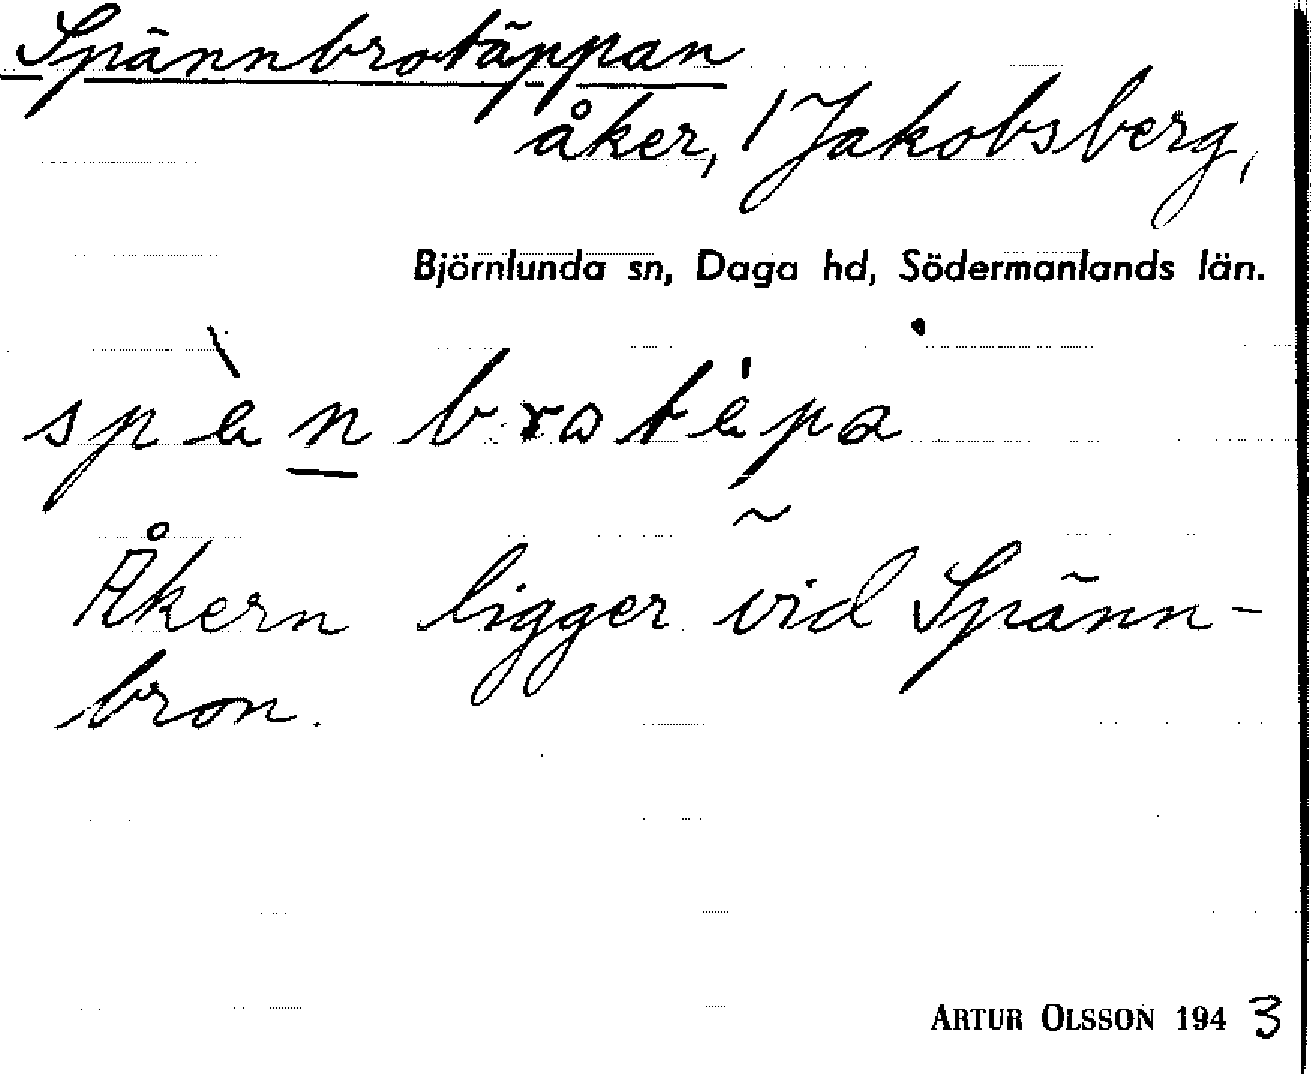 Spännbrotäppan
åker, 1 Jakobsberg,
Björnlunda sn, Daga hd, Södermanlands län.
spὲnbrotὲpa
Åkern ligger vid Spänn-
bron.
ARTUR OLSSON 1943